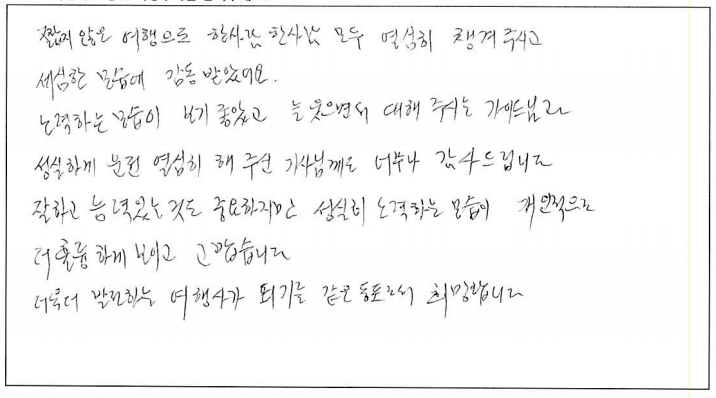 짧지 않은 여행으로 한사람 한사람 모두 열심히 챙겨 주시고
세심한 모습에 감동 받았어요.
노력하는 모습이 보기 좋았고 늘 웃으면서 대해 주시는 가이드님과
성실하게 운전 열심히 해 주신 기사님께도 너무나 감사드립니다
잘하고 능력있는것도 중요하지만 성실히 노력하는 모습이 개인적으로
더 훌륭하게 보이고 고맙습니다
더욱더 발전하는 여행사가 되기를 같은 동포로서 희망합니다